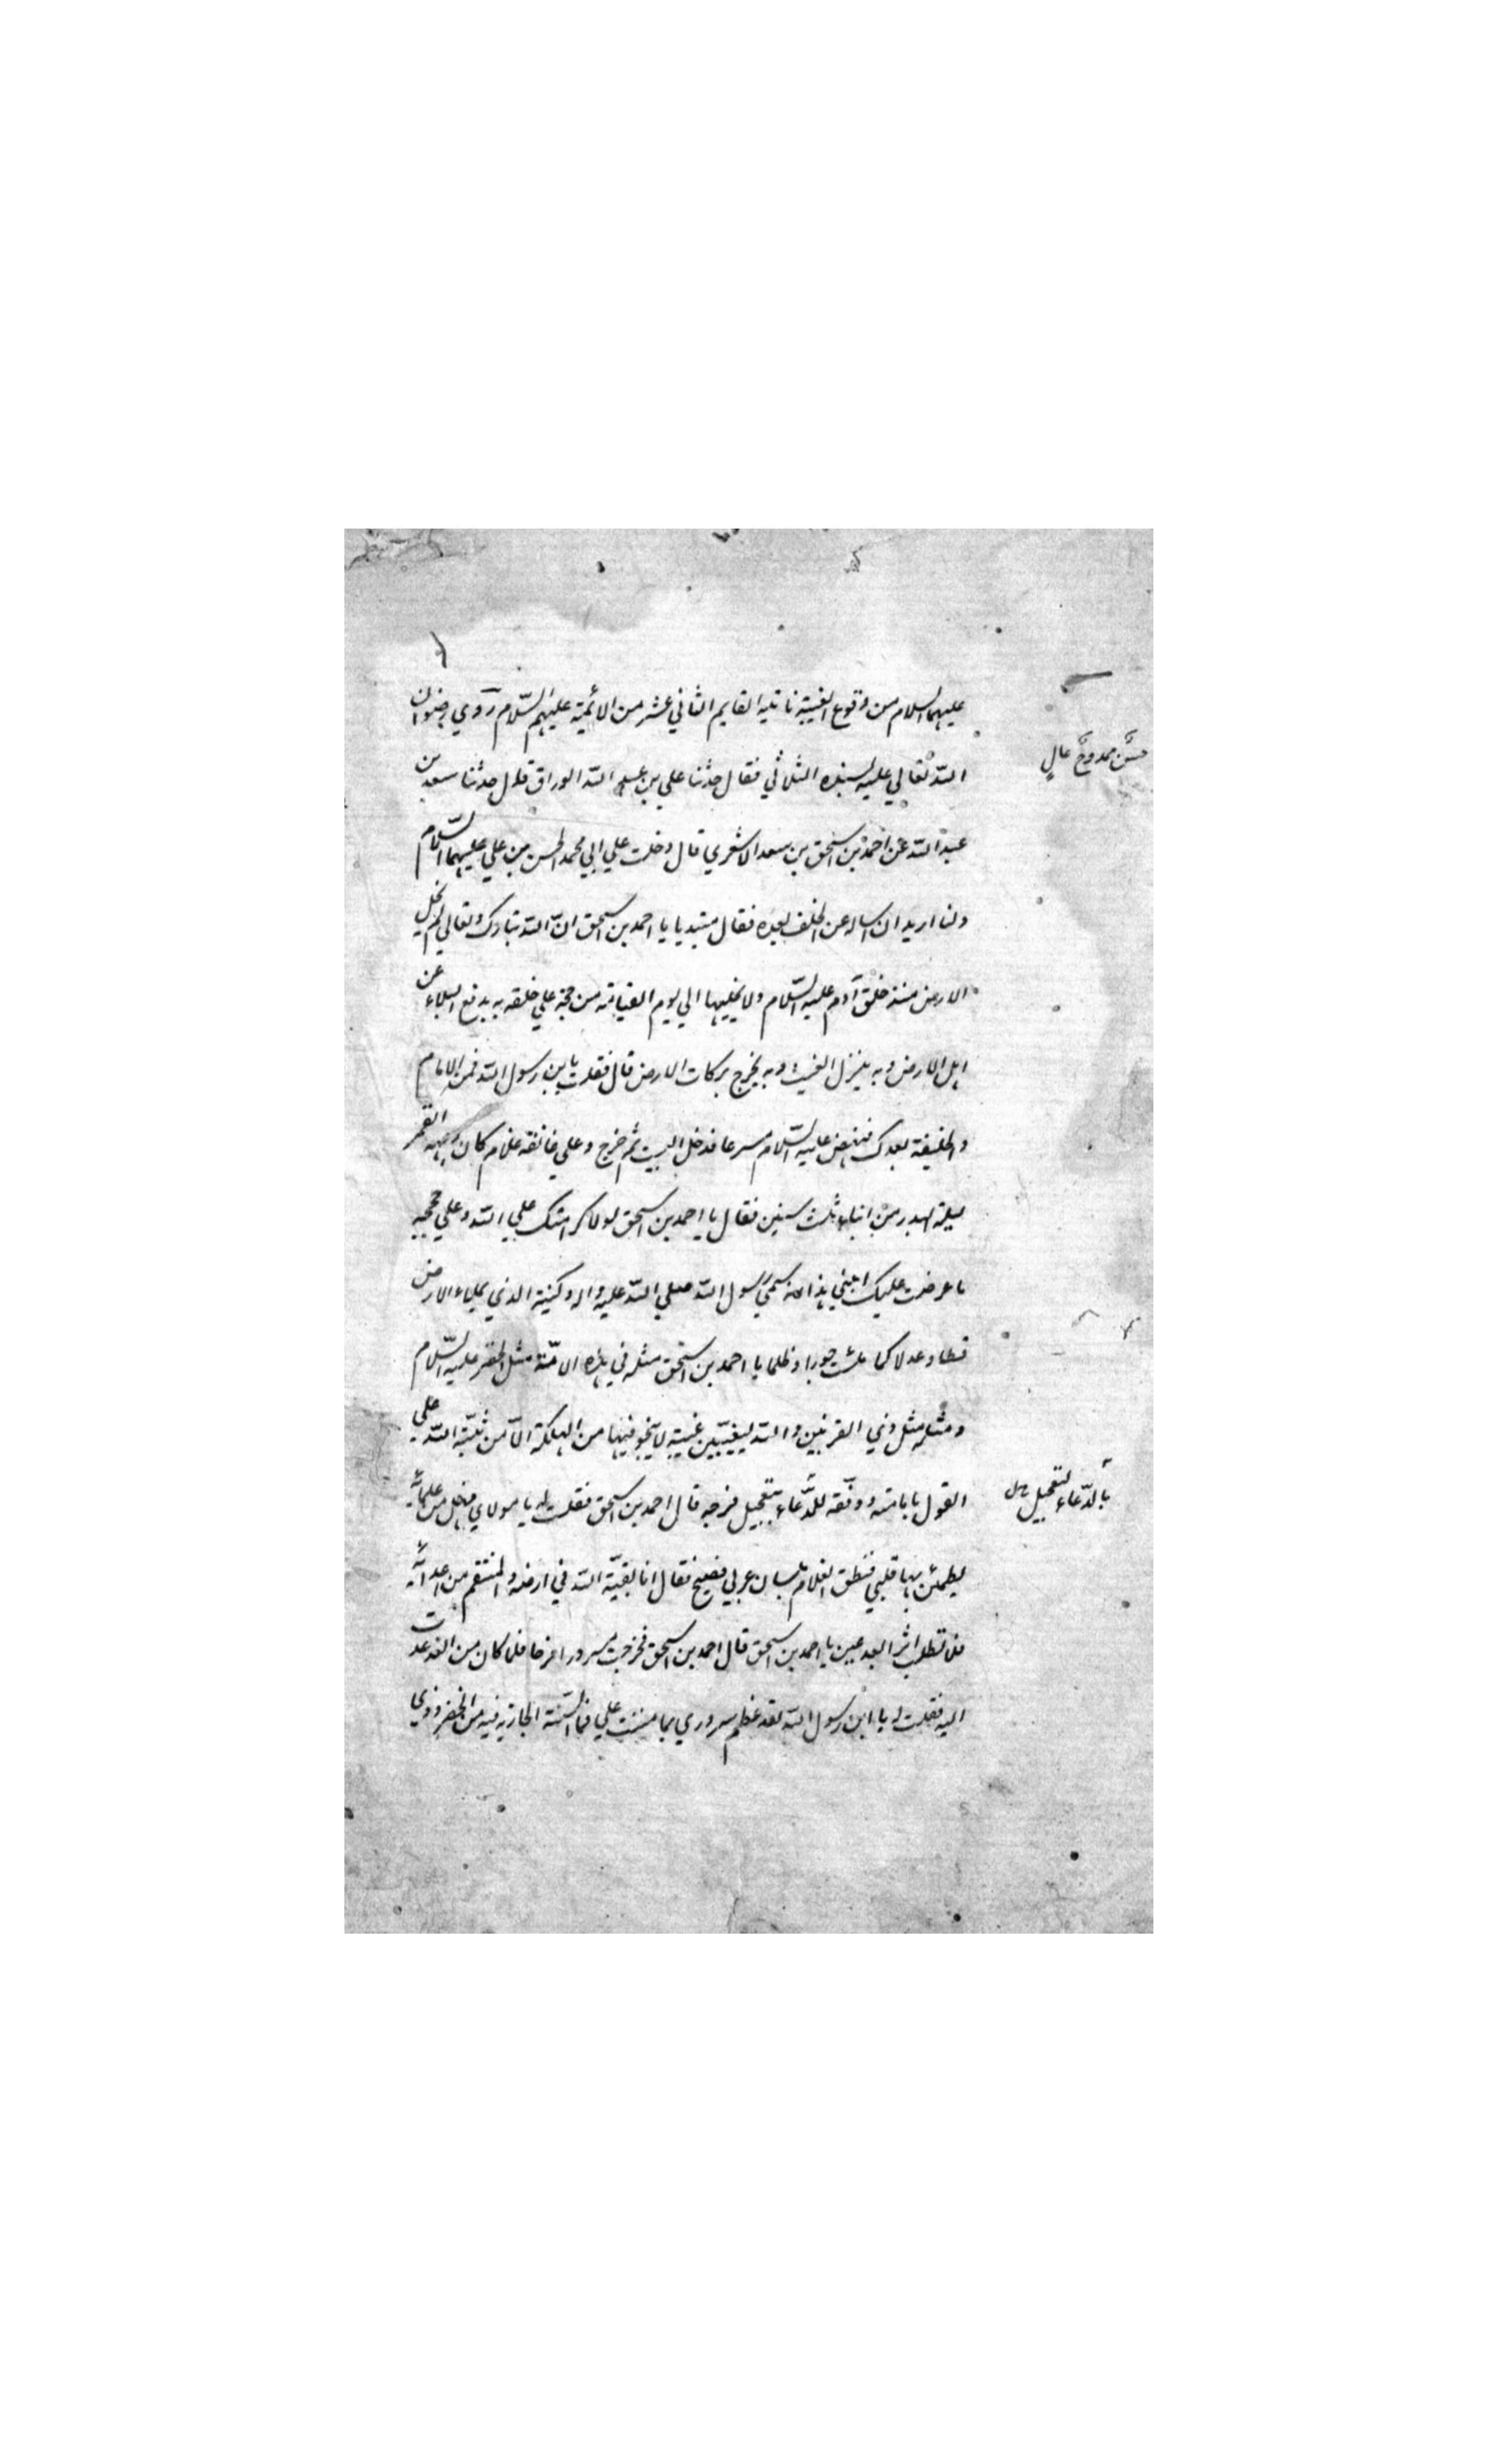 عليهما السلام من وقوع الغيبة ثانية القايم الثاني عشر من الائمة عليهم السّلام روي رضوان
اللّه تعالي عليه بسنده الثلاثي فقال حدثنا علي بن عبد اللّه الوراق قال حدثنا سعد بن
حسنٌ ممدوحٌ عالٍ
عبد اللّه عن احمد بن اسحق بن سعد الاشعري قال دخلت علي ابي محمد الحسن بن علي عليهما السّلام
وانا اريد ان اساله عن الخلف بعده فقال مبتديا يا احمد بن اسحق انّ اللّه تبارك وتعالي لم يخل
الارض منذ خلق آدم عليه السّلام ولا يخليها الي يوم القيامة من حجة علي خلقه به يدفع البلاء عن
اهل الارض وبه ينزل الغيث وبه يخرج بركات الارض قال فقلت يابن رسول اللّه فمن الامام
والخليفة بعدك فنهض عليه السّلام مسرعا فدخل البيت ثم خرج وعلي عاتقه غلام كان وجهه القمر
ليلة البدر من ابناء ثلث سنين فقال يا احمد بن اسحق لولا كرامتك علي اللّه وعلي حججه
ما عرضت عليك ابني هذا انه سمي رسول اللّه صلي اللّه عليه واله وكنيه الذي يملاء الارض
قسطا وعدلا كما ملئت جورا وظلما يا احمد بن اسحق مثله في هذه الامّة مثل الخضر عليه السّلام
ومثله مثل ذي القرنين واللّه ليغيبّن غيبة لا ينجو فيها من الهلكة الاّ من ثبّته اللّه علي
القول بامامته ووفّقه للدّعاء بتعجيل فرجه قال احمد بن اسحق فقلت له يا مولاي فهل من علامة
بالدّعاء لتعجيل
يطمئن بها قلبي فنطق الغلام بلسان عربي فصيح فقال انا بقيّة اللّه في ارضه والمنتقم من اعدائه
فلا تطلب اثرا بعد عين يا احمد بن اسحق قال احمد بن اسحق فخرجت مسرورا فرحا فلما كان من الغد عدت
اليه فقلت له يا ابن رسول اللّه لقد عظم سروري بما مننت علي فما السّنة الجارية فيه من الخضر وذي